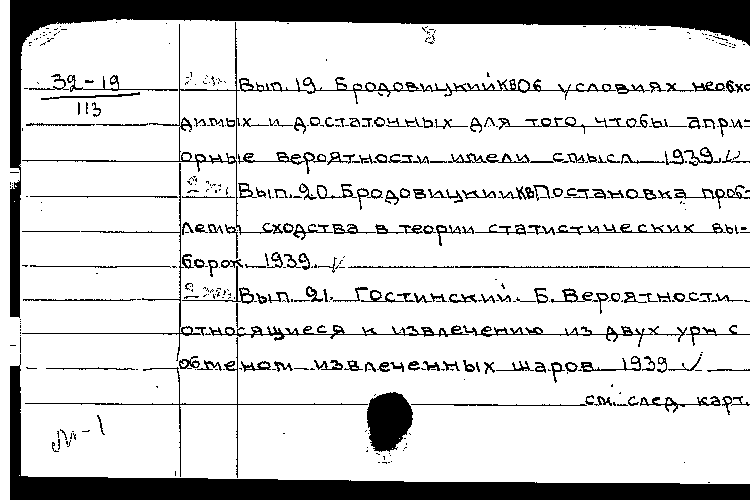 8
39-19
113
2 экз. Вып. 19. Бродовицкий К.В. Об условиях необхо-
димых и достаточных для того, чтобы апри-
орные вероятности имели смысл. 1939. ✓
2 экз. Вып. 20. Бродовицкий К.В. Постановка проб-
лемы сходства в теории статистических вы-
борок. 1939. ✓
2 экз. Вып. 21. Гостинский. Б. Вероятности
относящиеся к извлечению из двух урн с
обменом извлеченных шаров. 1939 ✓
см. след. карт.
М-1